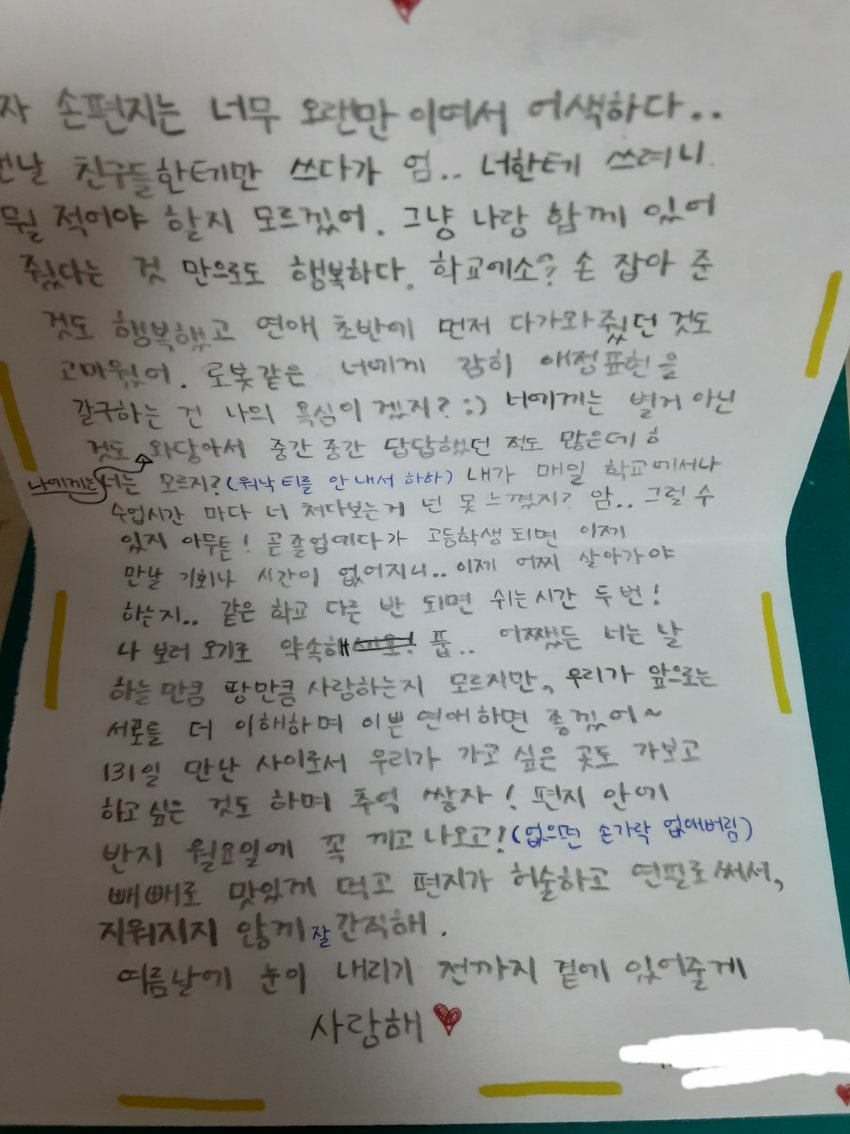 자 손편지는 너무 오랜만 이여서 어색하다..
맨날 친구들한테만 쓰다가 엄.. 너한테 쓰려니.
뭘 적어야 할지 모르겠어. 그냥 나랑 함께 있어
줬다는 것 만으로도 행복하다. 학교에소? 손 잡아 준
것도 행복했고 연애 초반에 먼저 다가와줬던 것도
고마웠어. 로봇같은 너에게 감히 애정표현을
갈구하는 건 나의 욕심이겠지? :) 너에게는 별거 아닌
것도 와닿아서 중간 중간 답답했던 적도 많은데 ㅎ
나에게는 너는 모르지? (워낙 티를 안 내서 하하) 내가 매일 학교에서나
수업시간 마다 너 쳐다보는거 넌 못 느꼈지? 암.. 그럴 수
있지 아무튼! 곧 졸업에다가 고등학생 되면 이제
만날 기회나 시간이 없어지니.. 이제 어찌 살아가야
하는지.. 같은 학교 다른 반 되면 쉬는시간 두 번!
나 보러 오기로 약속해 풉.. 어쨌든 너는 날
하늘 만큼 땅만큼 사랑하는지 모르지만, 우리가 앞으로는
서로를 더 이해하며 이쁜 연애하면 좋겠어~
131일 만난 사이로서 우리가 가고 싶은 곳도 가보고
하고 싶은 것도 하며 추억 쌓자! 편지 안에
반지 월요일에 꼭 끼고 나오고! (없으면 손가락 없애버림)
빼빼로 맛있게 먹고 편지가 허술하고 연필로 써서,
지워지지 않게 잘 간직해.
여름날에 눈이 내리기 전까지 곁에 있어줄게
사랑해